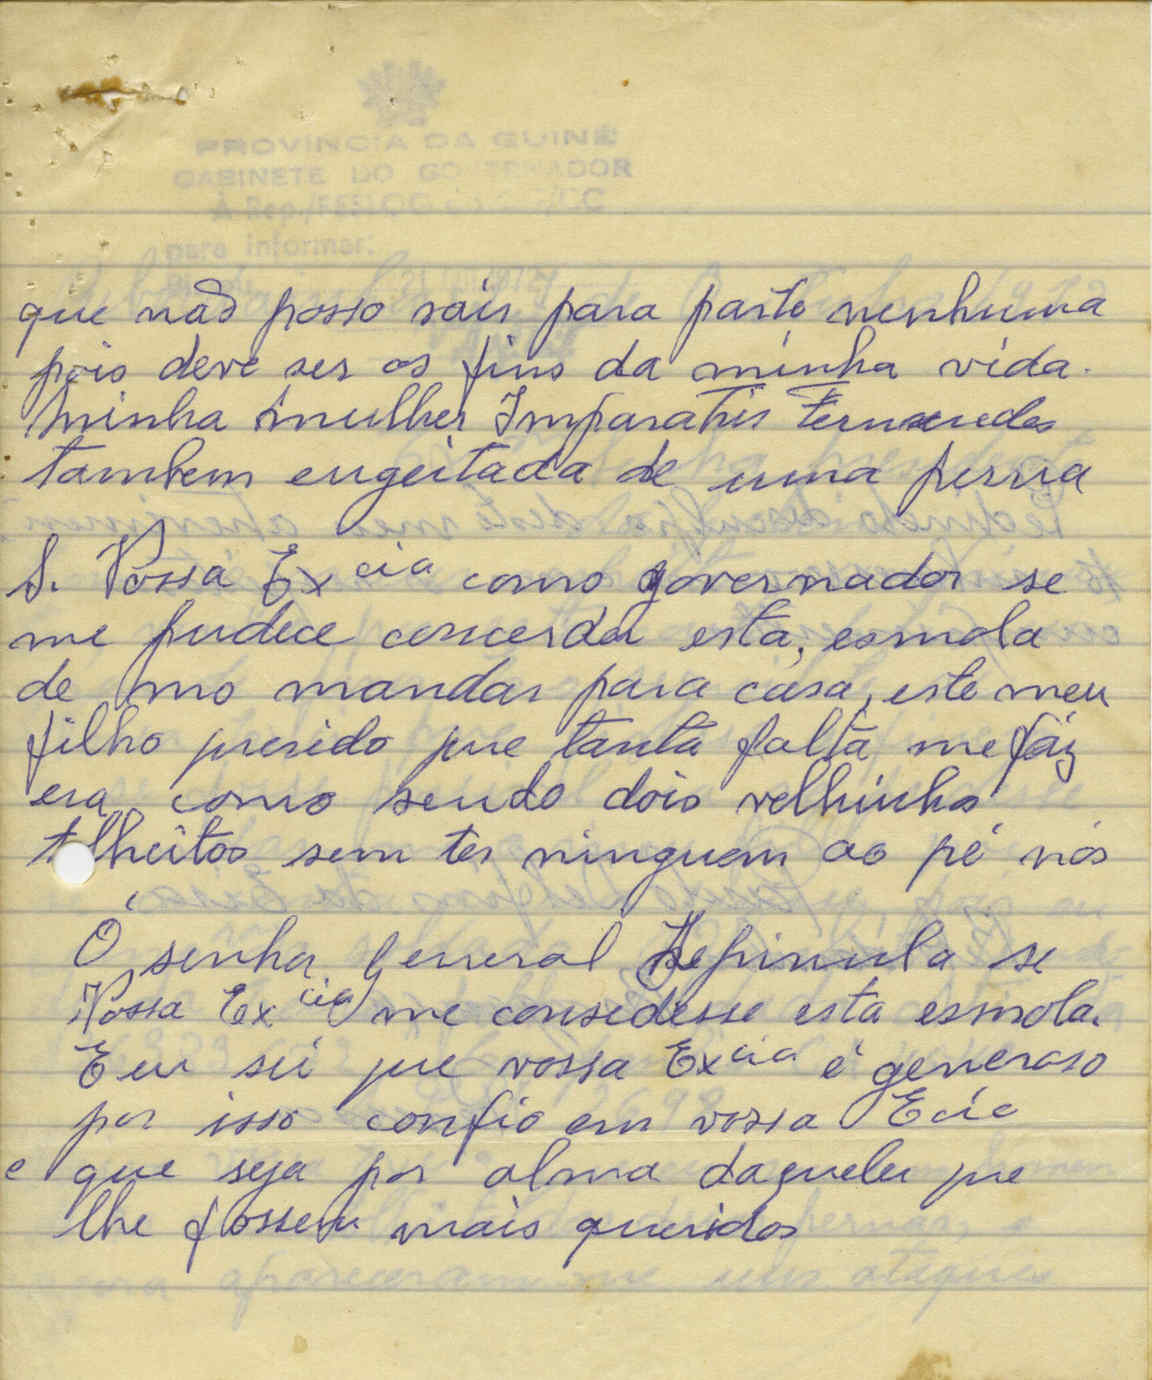 PROVINCIA DA GUINÉ
GABINETE DO GOVERNADOR
À Rep.
para informar:
que não posso sair para parte nenhuma
pois deve ser os fins da minha vida.
Minha mulher Fernandes
tambem engeitada de uma perna
S. Vossa Ex cia como governador se
me pudece concerder esta, esmola
de mo mandar para casa, este meu
filho querido que tanta falta me fáz
era como sendo dois velhinhos
sem ter ninguem ao pé nós
Ó senhor General Sepinula se
Vossa Ex cia me consedesse esta esmola.
E eu sei que vossa Ex cia é generoso
por isso confio em vossa E cia
e que seja por alma daqueles que
lhe fossem mais queridos